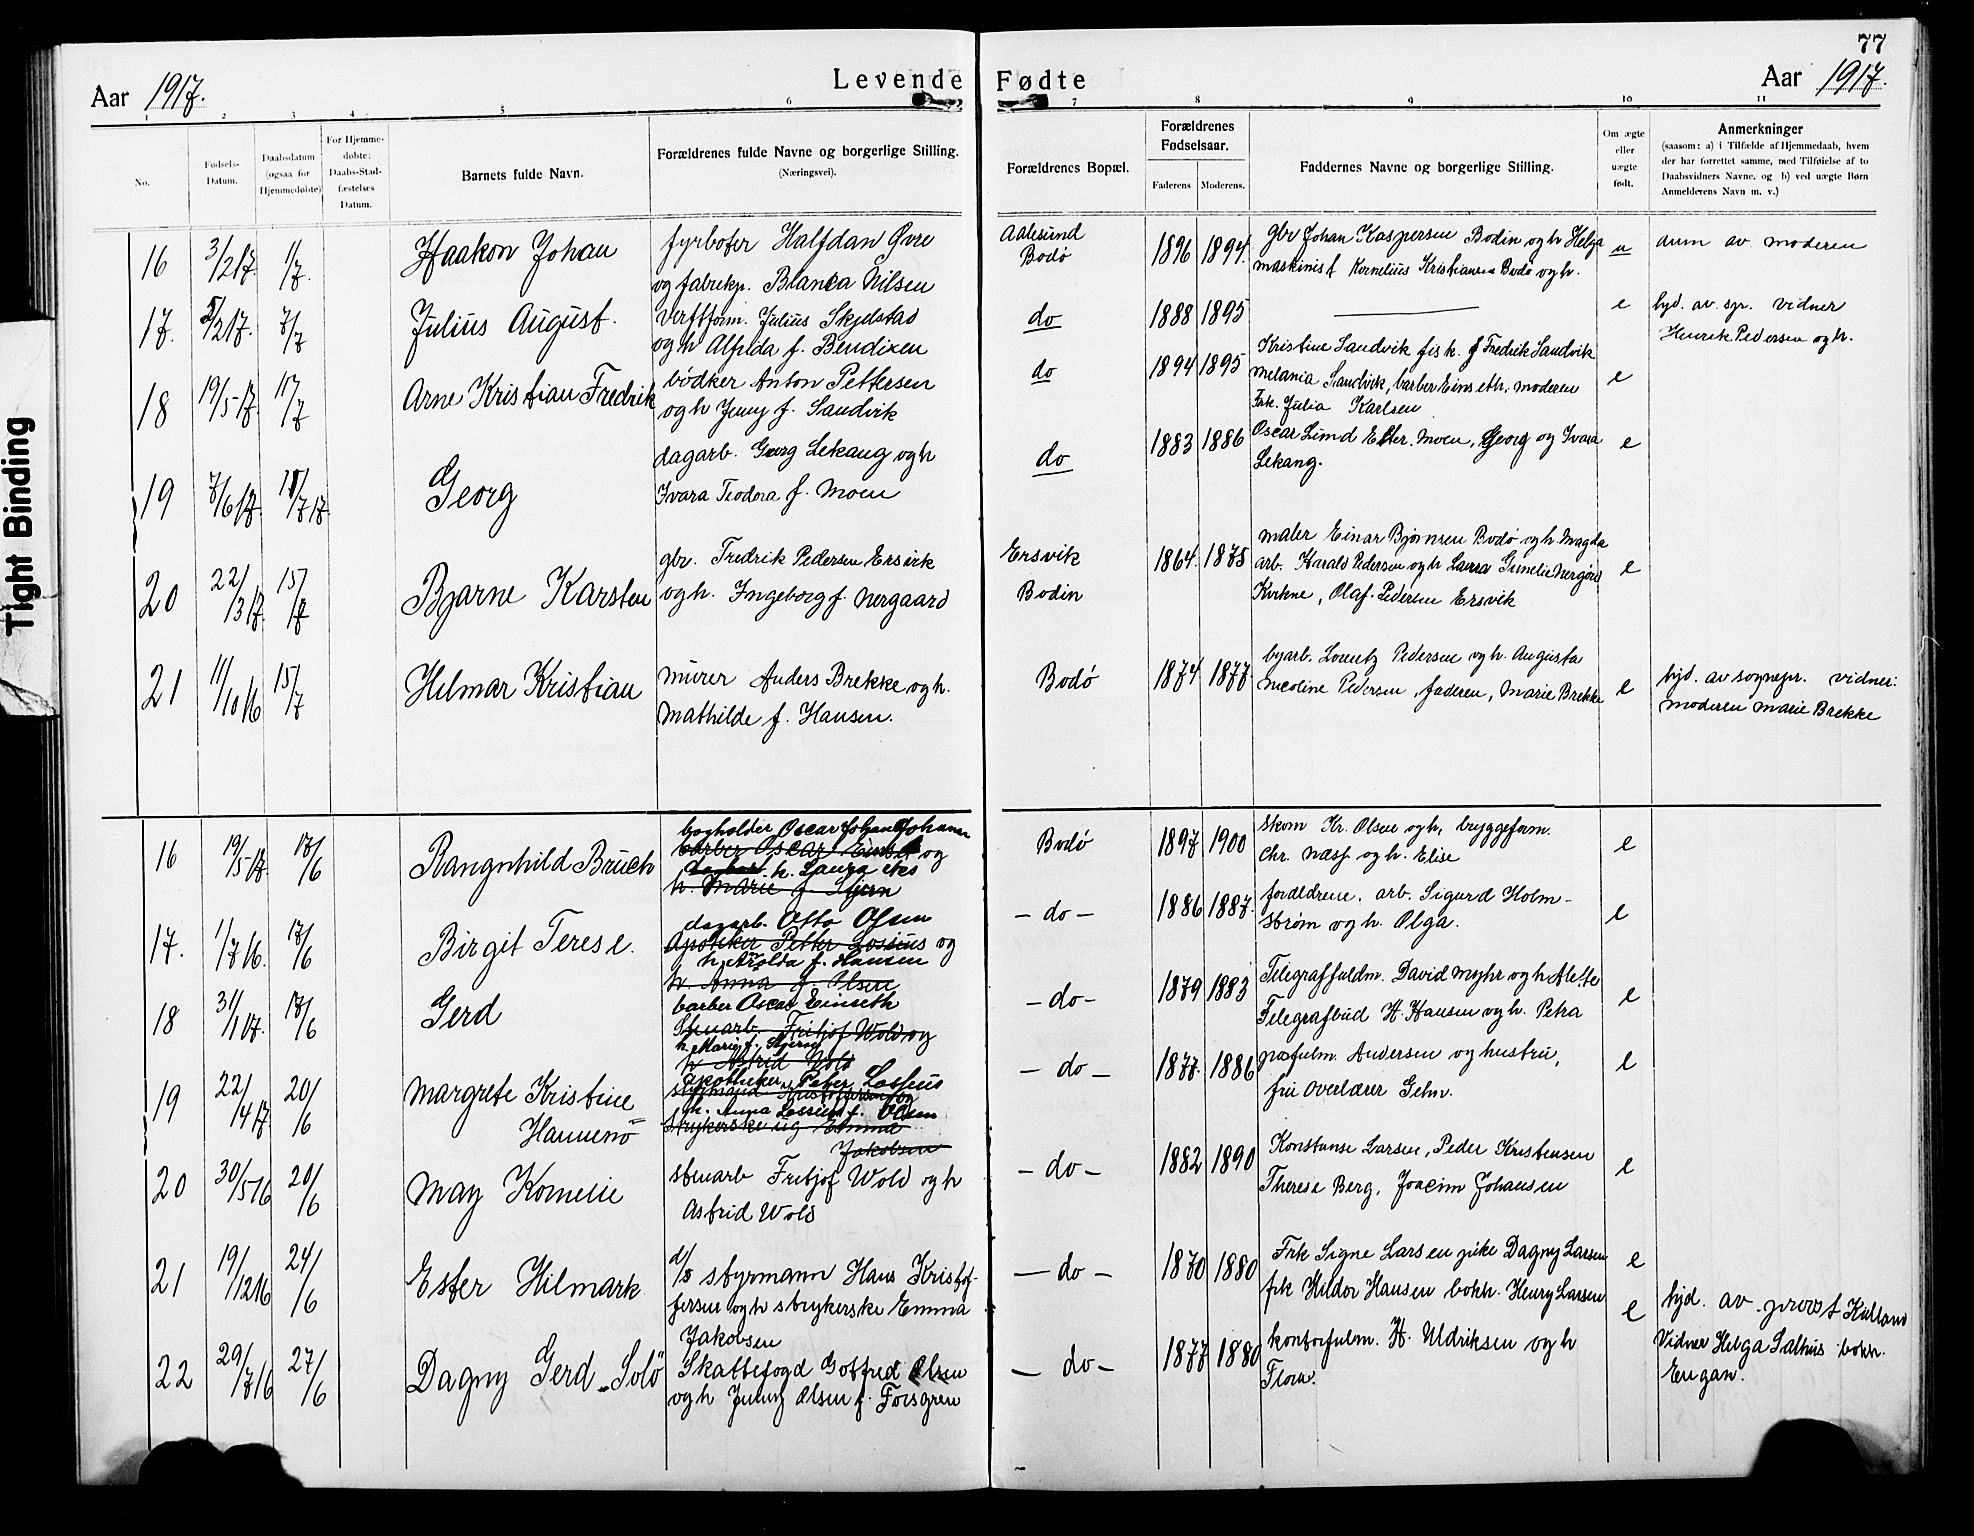 77
Aar 1917.
Levende Fødte
Aar 1917.
1 2 3 4 5 6 7 8 9 10 11
No.
Fødsels-
Datum.
Daabsdatum
(ogsaa for
Hjemmedøbte)
For Hjemme-
døbte:
Daabs-Stad-
fæstelses
Datum.
Barnets fulde Navn.
Forældrenes fulde Navne og borgerlige Stilling.
(Næringsvei).
Forældrenes Bopæl.
Forældrenes
Fødselsaar.
Faderens Moderens.
Faddernes Navne og borgerlige Stilling.
Om ægte
eller
uægte
født.
Anmerkninger
(saasom: a) i Tilfælde af Hjemmedaab, hvem
der har forrettet samme, med Tilføielse af to
Daabsvidners Navne, og b) ved uægte Børn
Anmelderens Navn m. v.)
16 3/2 17. 1/7. Haakon Johan
fyrbøter Halfdan Øvre
og fabrikp. Blanca Nilsen
Aalesund
Bodø
1896 1894.
gbr Johan Kaspersen Bodin og h Helga
maskinist Kornelius Kristiansen Bodø og h.
u
anm av moderen
17. 5/2 17. 7/7 Julius August.
Verftform. Julius Skjelstad
og h Alfilda f. Bendixen
do
1888 1895
e
hjd. av sp. vidner
Henrik Pedersen og h.
18 19/5-17. 10/7 Arne Kristian Fredrik
bødker Anton Pettersen
og h Jenny f. Sandvik
do
1894 1895
Kristine Sandvik fisk. f Fredrik Sandvik
Melania Sandvik, barber Einseth, moderen
Frk. Julia Karlsen
e
19 7/6 17. 11/7 17. Georg
dagarb. Georg Lekang og h
Ivara Teodora f. Moen
do
1883 1886
Oscar Lund Ester Moen, Georg og Ivara
Lekang.
e
20 22/3 17. 15/7 Bjarne Karsten
gbr. Fredrik Pedersen Ersvik
og h. Ingeborg f. Nergaard
Ersvik
Bodin
1864. 1875
maler Einar Bjørnsen Bodø og h Magda
arb. Harald Pedersen og h Laura Gunelie Nergård
Kvikne, Olaf Pedersen Ersvik
e
21 11/10 16 15/7 Hilmar Kristian
murer Anders Brekke og h.
Mathilde f. Hansen.
Bodø
1874 1877.
byarb. Lorentz Pedersen og h. Augusta
Nicoline Pedersen, faderen, Marie Brekke
e
hjd. av sognepr. vidner:
moderen Marie Brekke
16 19/5 17. 17/6 Rangnhild Bruch
bogholder Oscar Johan Johansen
barber Oscar Einseth og
h. Laura
h. Marie f. Stjern
Bodø
1897 1900
skom Kr. Olsen og h, bryggeform.
Chr. Næss og h. Elise
e
17. 1/7 16. 17/6 Birgit Terese.
dagarb. Otto Olsen
Apotheker Petter Lossius og
h. Arolda f. Hansen
h. Anna f. Olsen
- do -
1886 1887.
forældrene, arb. Sigurd Holm-
strøm og h. Olga.
e
18 31/1 17. 17/6 Gerd
barber Oscar Einseth
Stenarb. Fritjof Wold og
h. Marie f. Stjern
h Astrid Wold
- do -
1879 1883
Telegraffuldm. David Myhr og h Alette
Telegrafbud H. Hansen og h. Petra
e
19 22/4 17. 20/6 Margrete Kristine
Hannesø
apotheker Peter Lossius
styrmand Kristoffersen og
h. Anna Lossius f. Olsen
strykerske ug Emma
Jakobsen
- do -
1877. 1886
postfulm. Andersen og hustru,
fru overlærer Gehn.
e
20 30/5 16 20/6 May Kornelie
stenarb Fritjof Wold og h
Astrid Wold
- do -
1882 1890
Konstanse Larsen, Peder Kristensen
Therese Berg, Joacim Johansen
e
21 19/12 16 24/6 Ester Hilmark
d/s styrmann Hans Kristof-
fersen og h strykerske Emma
Jakobsen
- do -
1870 1880
Frk Signe Larsen pike Dagny Larsen
frk Hildor Hansen bokh. Henry Larsen
e
22 29/7 16 27/6 Dagny Gerd Solø
Skattefogd Gotfred Olsen
og h Jenny Olsen f. Forsgren
- do -
1877 1880
kontorfulm. H. Uldriksen og h
Flora.
e
hjd. av provst Kulland
Vidner Helga Salhus bokh.
Engan.
Tight Binding